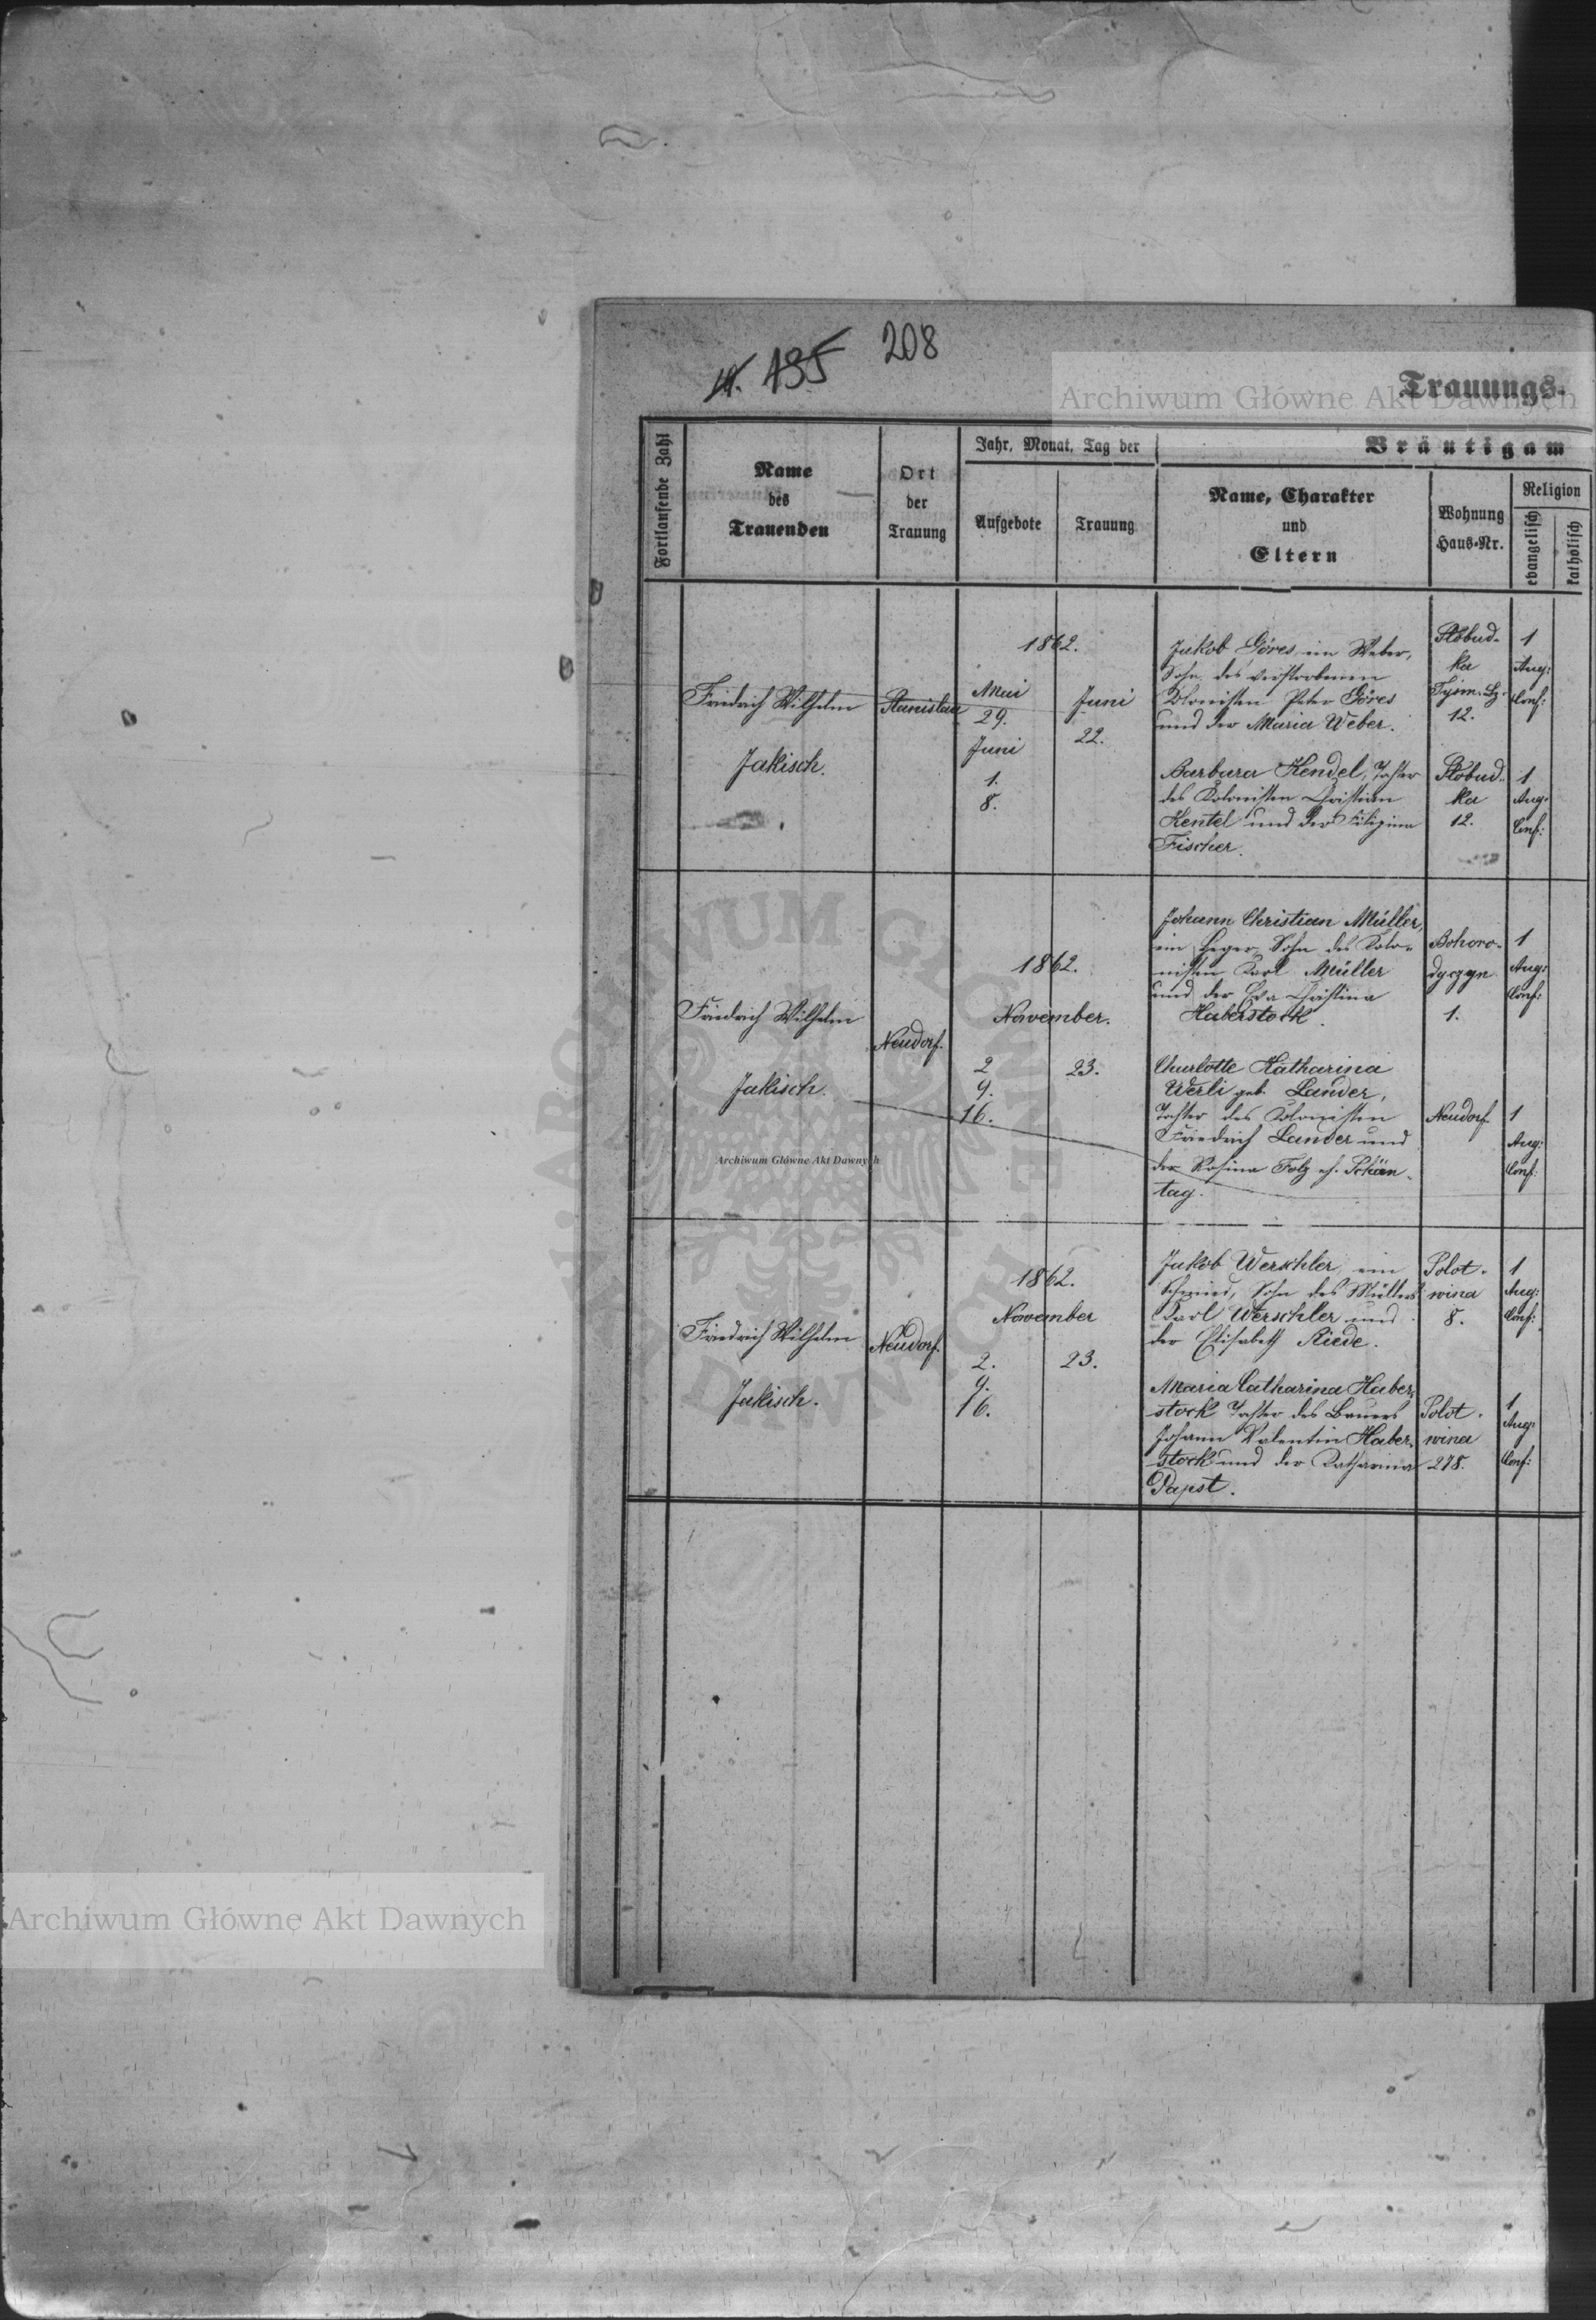 135 208
Trauungs-
Archiwum Główne Akt Dawnych
Fortlaufende Zahl
Name
des
Trauenden
Ort
der
Trauung
Jahr, Monat, Tag der
Aufgebote
Trauung
Bräutigam
Name, Charakter
und
Eltern
Wohnung
Haus-Nr.
Religion
evangelisch
katholisch
Friedrich Wilhelm
Jakisch.
Stanislau
1862.
Mai
29.
Juni
1.
8.
Juni
22.
Jakob Göres, ein Weber,
Sohn des verstorbenen
Kolonisten Peter Göres
und der Maria Weber.
Slobud-
ka
12.
1
Aug:
Conf:
Barbara Hendel, Tochter
des Kolonisten Christian
Hentel und der Filipina
Fischer.
Slobud-
ka
12.
1
Aug.
Conf:
Friedrich Wilhelm
Jakisch.
Neudorf.
1862.
November.
2
9.
16.
23.
Johann Christian Müller,
ein Heger, Sohn des Kolo-
nisten Karl Müller
und der Eva Christina
Haberstock.
Bohoro-
dyczyn
1.
1
Aug:
Conf:
Charlotte Katharina
Werli geb. Lander,
Tochter des Kolonisten
Friedrich Lander und
der Rosina Folz
tag.
Neudorf.
1
Aug:
Conf:
Archiwum Główne Akt Dawnych
Friedrich Wilhelm
Jakisch.
Neudorf.
1862.
November
2.
9.
16.
23.
Jakob Werschler, ein
Schmied, Sohn des Müllers
Karl Werschler und
der Elisabeth Riede.
Polot-
wina
8.
1
Aug:
Conf:
Maria Catharina Haber-
stock Tochter des Bauers
Johann Valentin Haber-
stock und der Katharina
Papst.
Polot-
wina
278.
1
Aug:
Conf:
ARCHIWUM GŁÓWNE AKT DAWNYCH
Archiwum Główne Akt Dawnych